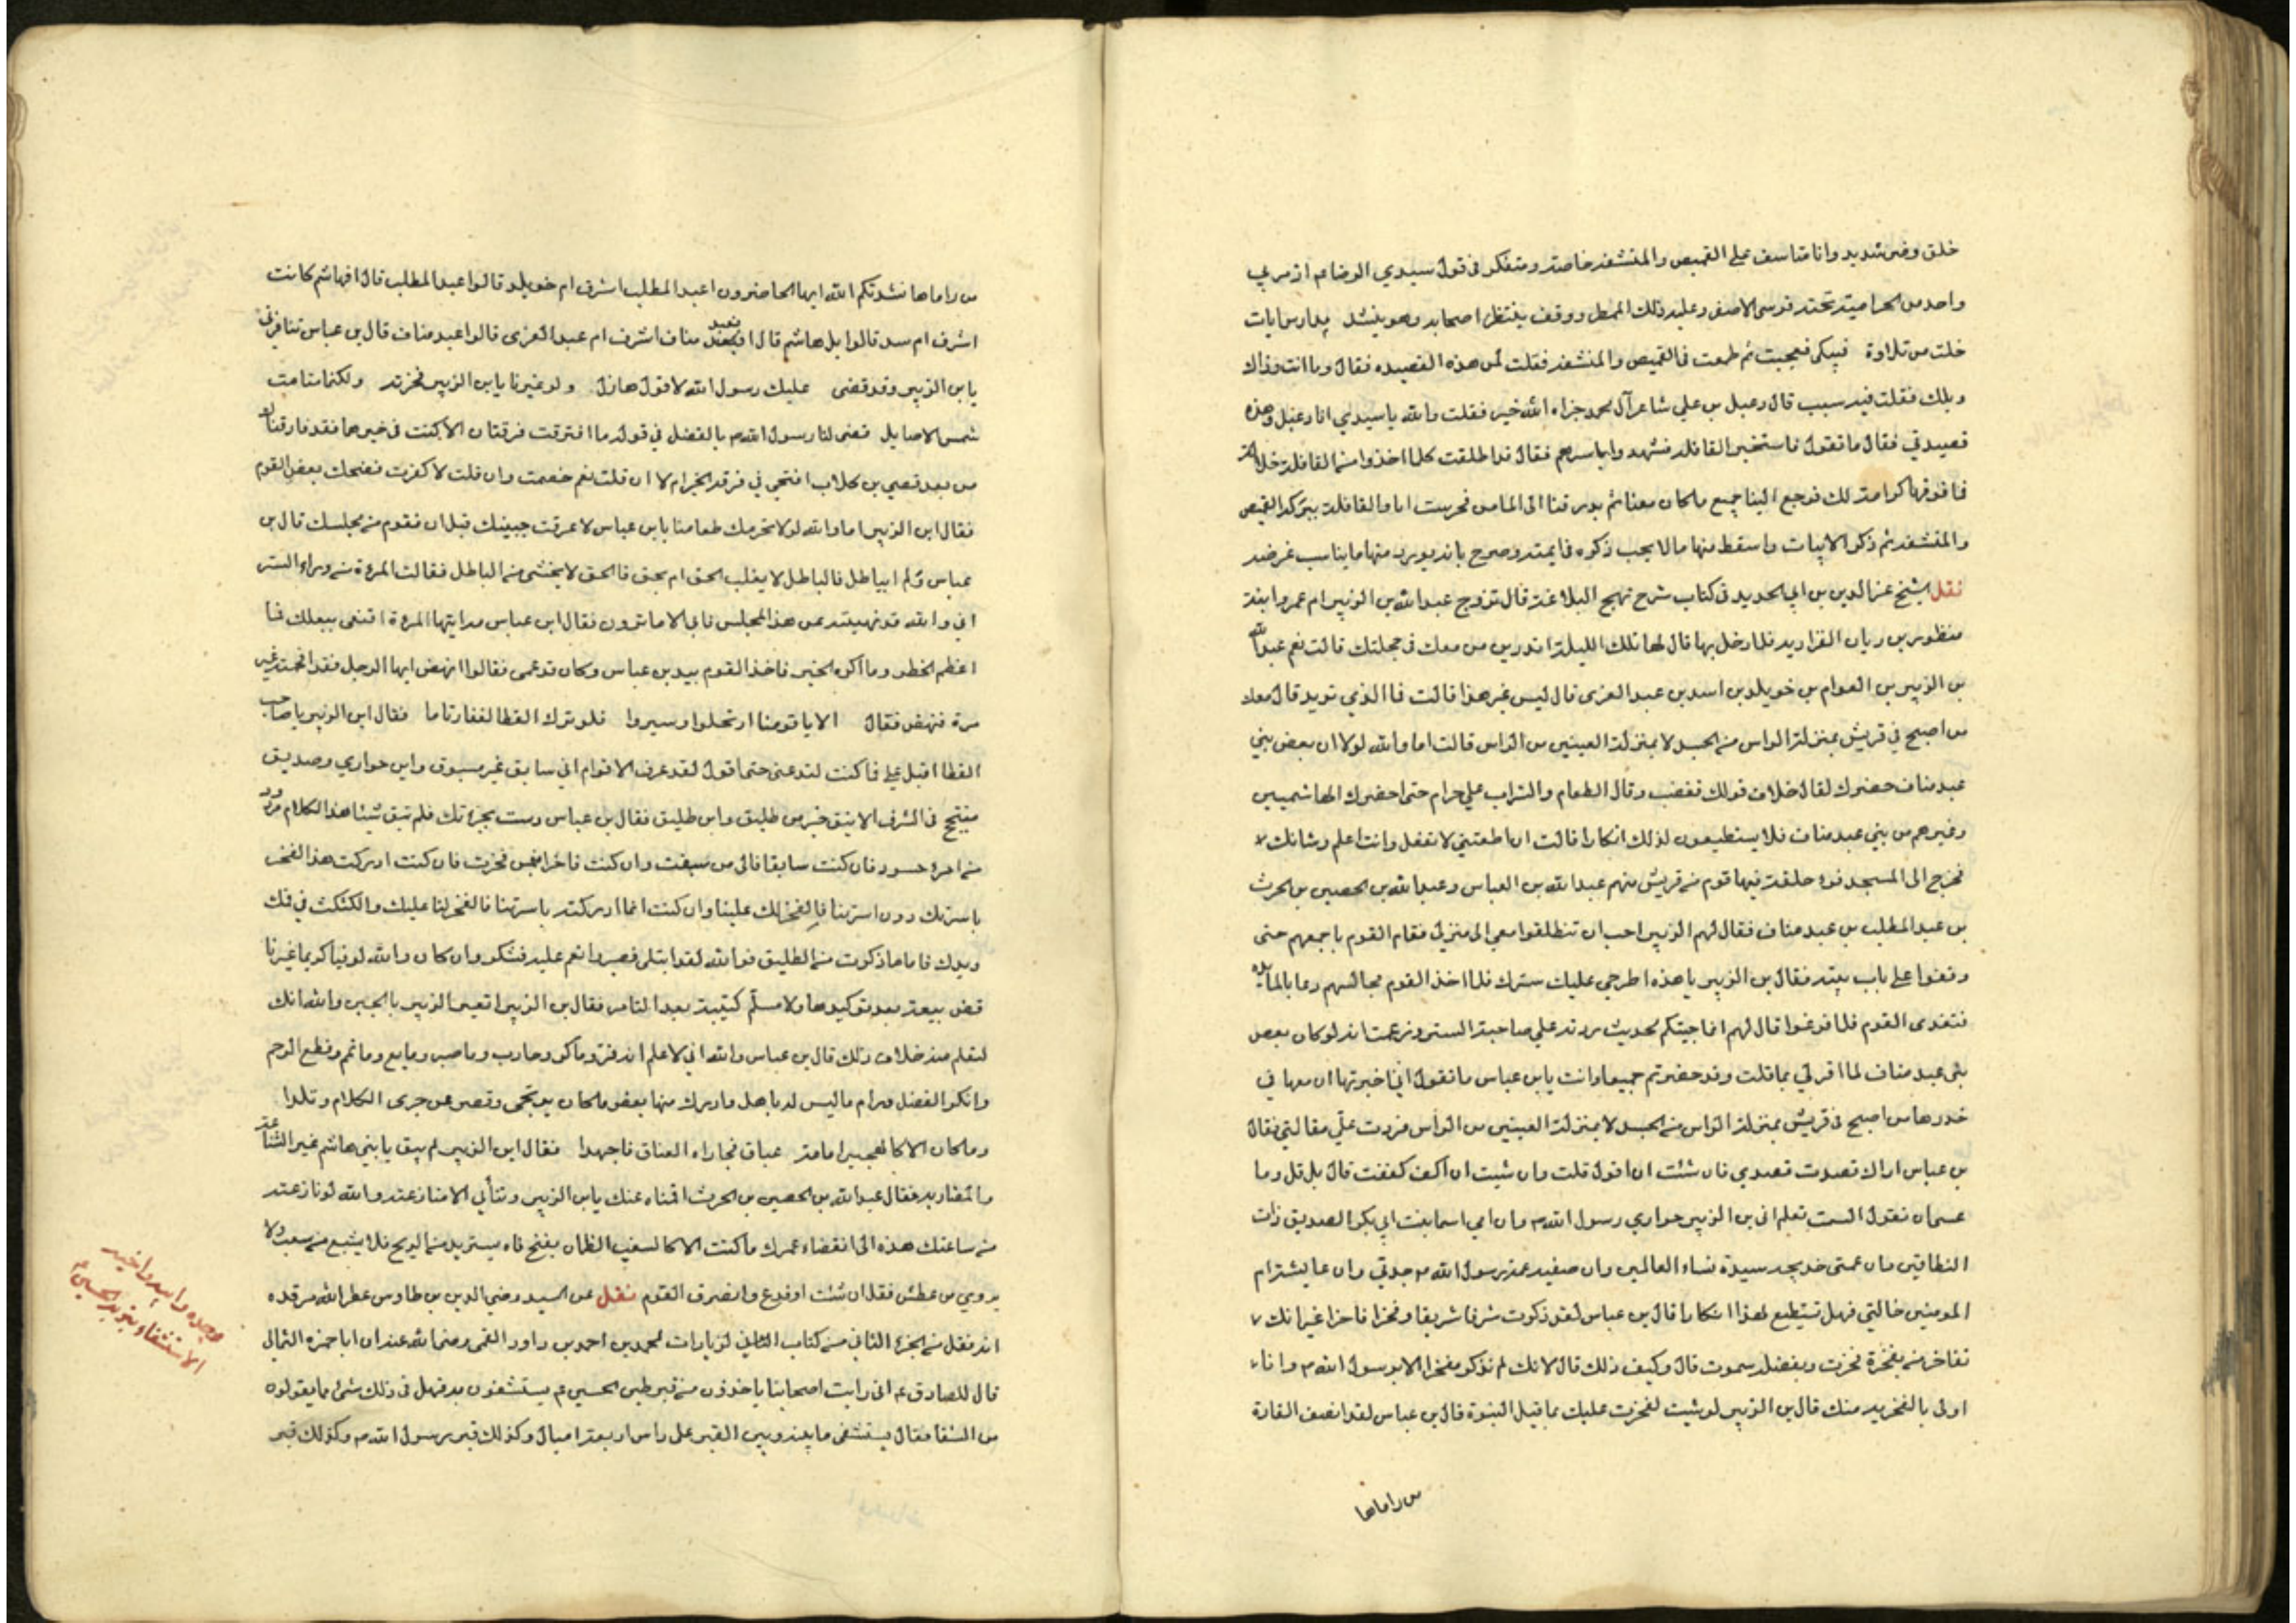 خلق وضر شديد وانا متاسف على القميص والمنشفه خاصة ومتفكر فى قول سيدي الرضا ع م اذ مر بي
واحد من الحراميه تحته فرس الاصفر وعليه ذلك الممطر ووقف ينتظر اصحابه وهو ينشد مدارس ايات
خلت من تلاوة فيبكى فعجبت ثم طمعت فى القميص والمنشفه فقلت لمن هذه القصيده فقال وما انت وذاك
ويلك فقلت فيه سبب قال دعبل بن علي شاعر آل محمد جزاه الله خير فقلت والله يا سيدي انا دعبل وهذه
قصيدتي فقال ما تقول فاستخبر القافله فشهدوا باسرهم فقال قد اطلقت كلما اخذوا من القافله خلاله
فما فوقها كرامة لك فرجع الينا جميع ما كان معنا ثم بدرقنا الى المامن فحرست انا والقافله ببركة القميص
والمنشفه ثم ذكر الابيات واسقط منها ما لا يجب ذكره وصرح بانه يورد منها ما يناسب غرضه
نقل الشيخ عز الدين بن ابي الحديد فى كتاب شرح نهج البلاغه قال تزوج عبد الله بن الزبير ام عمرو ابنة
منظور بن ريان الفزاريه فلما دخل بها قال لها تلك الليلة اتدرين من معك فى حجلتك قالت نعم عبد الله
بن الزبير بن العوام بن خويلد بن اسد بن عبد العزى قال ليس غير هذا قالت فما الذي تريد قال معك
من اصبح في قريش بمنزلة الراس من الجسد لا بمنزلة العينين من الراس قالت اما والله لولا ان بعض بني
عبد مناف حضرك لقال خلاف قولك فغضب وقال الطعام والشراب علي حرام حتى احضرك الهاشميين
وغيرهم من بني عبد مناف فلا يستطيعون لذلك انكارا قالت ان اطعتني لا تفعل وانت اعلم وشانك
فخرج الى المسجد فراى حلقة فيها قوم من قريش منهم عبد الله بن العباس وعبد الله بن الحصين بن الحرث
بن عبد المطلب بن عبد مناف فقال لهم الزبير احب ان تنطلقوا معي الى منزلي فقام القوم باجمعهم حتى
وقفوا على باب بيته فقال بن الزبير يا هذه اطرحي عليك سترك فلما اخذ القوم مجالسهم دعا بالمائده
فتغدى القوم فلما فرغوا قال لهم انما جيتكم لحديث ردته علي صاحبة الستر وزعمت انه لو كان بعض
بنى عبد مناف لما اقر لي بما قلت وقد حضرتم جميعا وانت يا بن عباس ما تقول اني اخبرتها ان معها في
خدرها من اصبح فى قريش بمنزلة الراس من الجسد لا بمنزلة العينين من الراس فردت علي مقالتي فقال
بن عباس اراك قصدت قصدي فان شئت ان اقول قلت وان شيت ان اكف كففت قال بل قل وما
عسيان تقول الست تعلم انى بن الزبير حواري رسول الله ص وان امي اسما بنت ابي بكر الصديق ذات
النطاقين وان عمتى خديجه سيدة نساء العالمين وان صفيه عمة رسول الله ص جدتي وان عايشة ام
المومنين خالتي فهل تستطيع لهذا انكارا قال بن عباس لقد ذكرت شرفا شريفا وفخرا فاخرا غير انك
تفاخر من بفخره فخرت وبفضله سموت قال وكيف ذلك قال لانك لم تذكر مفخرا الا برسول الله ص وانا
اولى بالفخر به منك قال بن الزبير لو شيت لفخرت عليك بما قبل النبوة قال بن عباس لقد انصف القارة
من راماها
من راماها نشدتكم الله ايها الحاضرون اعبد المطلب اشرف ام خويلد قالوا عبد المطلب قال افهاشم كانت
اشرف ام سد قالوا بل هاشم قال افعبد مناف اشرف ام عبد العزى قالوا عبد مناف قال بن عباس تنافرنى
يا بن الزبير وقد قضى عليك رسول الله لا قول هازل ولو غيرنا يا بن الزبير فخرته ولكنما سامت
شمس الاصايل قضى لنا رسول الله ص بالفضل في قوله ما افترقت فرقتان الا كنت فى خيرهما فقد فارقناك
من بعد قصي بن كلاب افنحن في فرقة الخير ام لا ان قلت نعم خصمت وان قلت لا كفرت فضحك بعض القوم
فقال ابن الزبير اما والله لولا تحرمك طعامنا يا بن عباس لاعرقت جبينك قبل ان تقوم من مجلسك قال بن
عباس ولم ابباطل فالباطل لا يغلب الحق ام بحق فالحق لا يخشى من الباطل فقالت المرءة من وراء الستر
اني والله قد نهيته عن هذا المجلس فابى الا ما ترون فقال ابن عباس مه ايتها المرءة اقنعى ببعلك فما
اعظم الخطر وما اكرم الخبر فاخذ القوم بيد بن عباس وكان قد عمى فقالوا انهض ايها الرجل فقد افحمته غير
مرة فنهض فقال الا يا قومنا ارتحلوا وسيروا فلو ترك القطا لغفا وناما فقال ابن الزبير يا صاحب
القطا اقبل علي فما كنت لتدعنى حتى اقول لقد عرف الاقوام اني سابق غير مسبوق وابن حواري وصديق
متبجح فى الشرف الانيق خير من طليق وابن طليق فقال بن عباس دسعت بجرتك فلم تبق شيئا هذا الكلام مردود
من امرء حسود فان كنت سابقا فالى من سبقت وان كنت فاخرا فبمن فخرت فان كنت ادركت هذا الفخر
باسرتك دون اسرتنا فالفخر لك علينا وان كنت انما ادركته باسرتنا فالفخر لنا عليك والكثكث في فمك
ويدك فاما ما ذكرت من الطليق فوالله لقد ابتلى فصبر وانعم عليه فشكر وان كان والله لوفيا كريما غير نا
قض بيعة بعد توكيدها ولا مسلم كتيبة بعد التامر فقال بن الزبير اتعير الزبير بالجبن والله انك
لتعلم منه خلاف ذلك قال بن عباس والله اني لا علم انه فر وما كر وحارب وما صبر وبايع وما تم وقطع الرحم
وانكر الفضل ورام ما ليس له باهل وادرك منها بعض ما كان يرتجى وقصر عن جرى الكلام وتلدا
وما كان الا كالهجين امامه عباق فجاراه العناق فاجهدا فقال ابن الزبير لم يبق يا بني هاشم غير المشاتمه
والمضاربه فقال عبد الله بن الحصين بن الحرث اقمناه عنك يا بن الزبير وتتأبى الا منازعته والله لو نازعته
من ساعتك هذه الى انقضاء عمرك ما كنت الا كالسغب الظمان يفتح فاه يستزيد من الريح فلا يشبع من سغب ولا
يروي من عطش فقل ان شئت او فدع وانصرف القوم نقل عن السيد رضي الدين بن طاوس عطر الله مرقده
انه نقل من الجزء الثاني من كتاب الزيارات لمحمد بن احمد بن داود القمى رضى الله عنه ان ابا حمزه الثمالي
قال للصادق ع م انى رايت اصحابنا ياخذون من قبر طين الحسين ع م يستشفون به فهل فى ذلك شئ مما يقولون
من الشفا فقال يستشفى ما بينه وبين القبر على راس اربعة اميال وكذلك قبر رسول الله ص وكذلك قبر
وجده وابيه واخيه
الاستشفاء بتربة الحسين ع